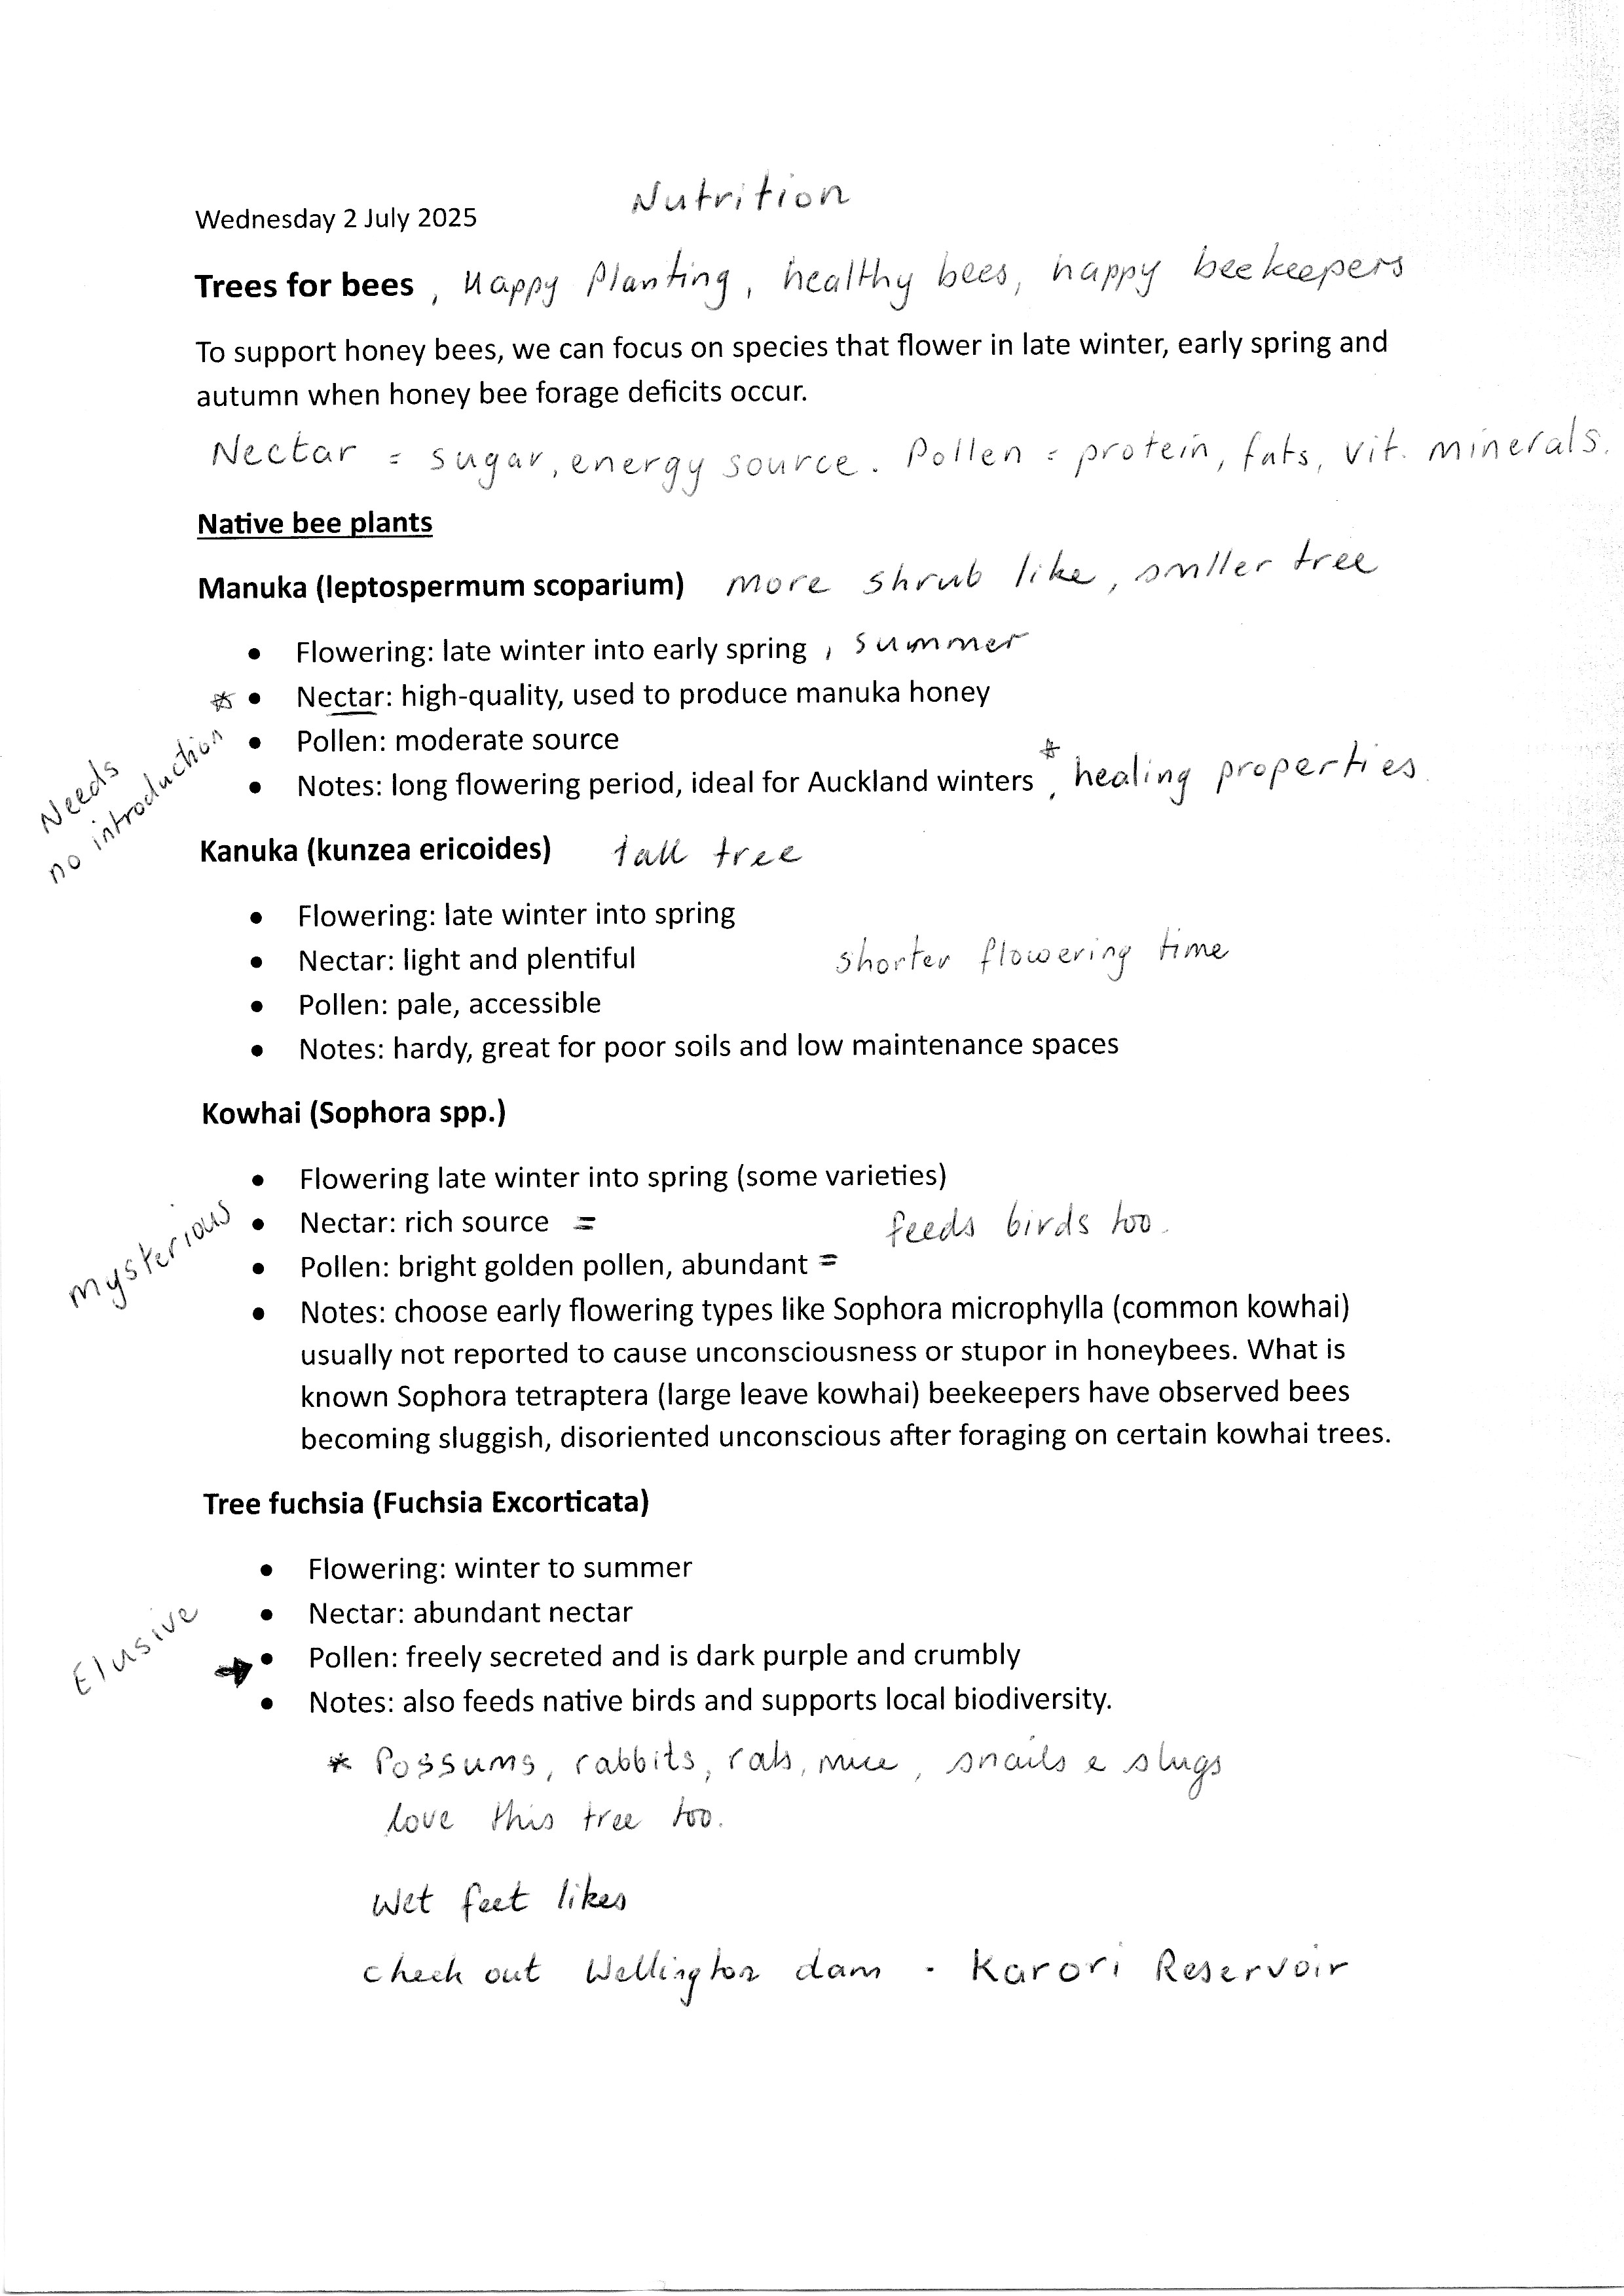 Nutrition
Wednesday 2 July 2025
Trees for bees , Happy Planting, healthy bees, happy beekeepers
To support honey bees, we can focus on species that flower in late winter, early spring and
autumn when honey bee forage deficits occur.
Nectar = sugar, energy source. Pollen = protein, fats, vit. minerals.
Native bee plants
Manuka (leptospermum scoparium) more shrub like, smller tree
• Flowering: late winter into early spring , summer
* • Nectar: high-quality, used to produce manuka honey
• Pollen: moderate source
• Notes: long flowering period, ideal for Auckland winters *, healing properties
Needs
no introduction
Kanuka (kunzea ericoides) tall tree
• Flowering: late winter into spring
• Nectar: light and plentiful shorter flowering time
• Pollen: pale, accessible
• Notes: hardy, great for poor soils and low maintenance spaces
Kowhai (Sophora spp.)
• Flowering late winter into spring (some varieties)
mysterious
• Nectar: rich source = feeds birds too.
• Pollen: bright golden pollen, abundant =
• Notes: choose early flowering types like Sophora microphylla (common kowhai)
usually not reported to cause unconsciousness or stupor in honeybees. What is
known Sophora tetraptera (large leave kowhai) beekeepers have observed bees
becoming sluggish, disoriented unconscious after foraging on certain kowhai trees.
Tree fuchsia (Fuchsia Excorticata)
• Flowering: winter to summer
• Nectar: abundant nectar
Elusive
→ • Pollen: freely secreted and is dark purple and crumbly
• Notes: also feeds native birds and supports local biodiversity.
* Possums, rabbits, rats, mice, snails & slugs
love this tree too.
Wet feet likes
check out Wellington dam - Karori Reservoir